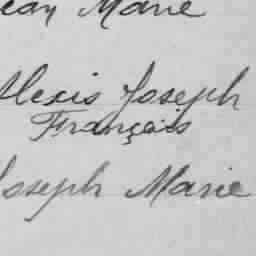 ean Marie
Alexis Joseph
Français
Joseph Marie